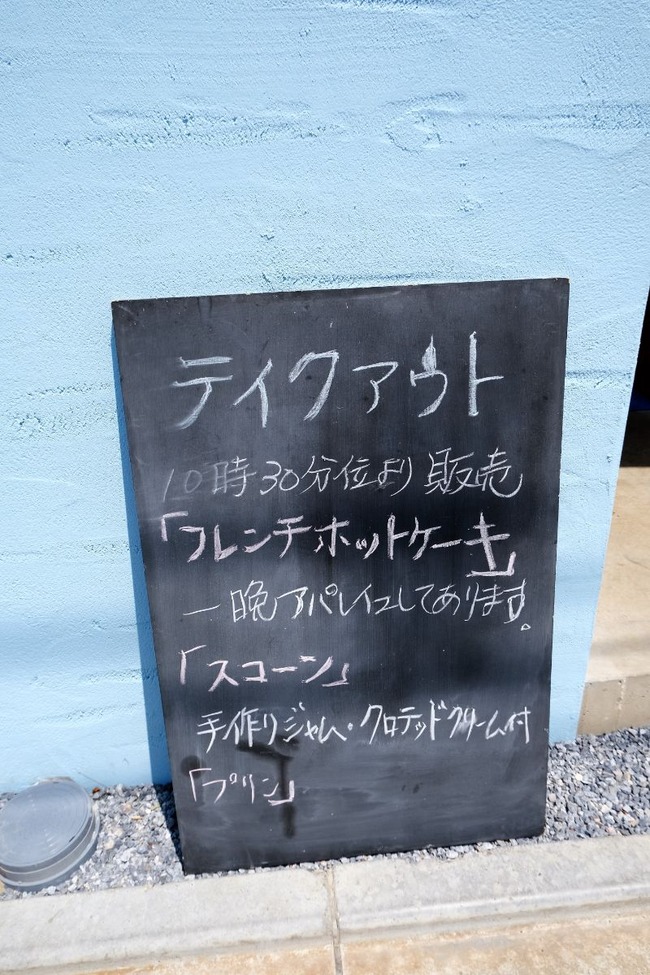 テイクアウト
10時30分位より販売
「フレンチホットケーキ」
一晩アパレイユしてあります。
「スコーン」
手作りジャム・クロテッドクリーム付
「プリン」